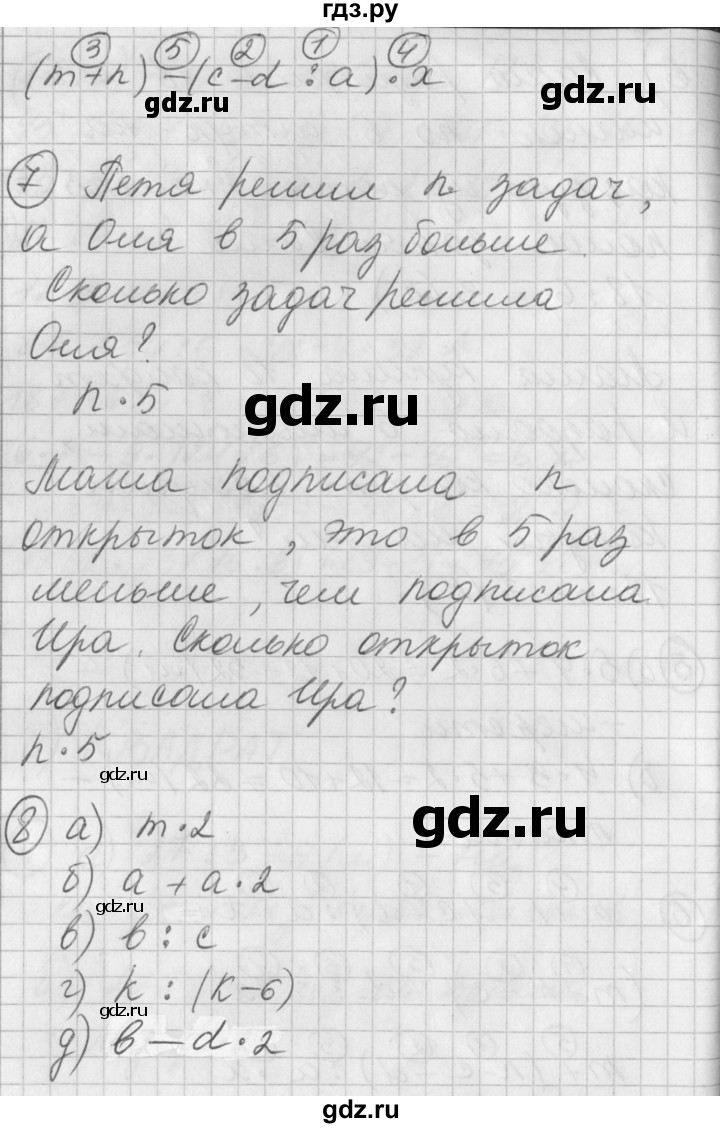 гдз.ру
3 5 2 1 4
(m+n) - (c-d : a) · x
gdz.ru gdz.ru
7 Петя решил n задач,
а Оля в 5 раз больше.
Сколько задач решила
Оля?
n · 5
gdz.ru
Маша подписала n
открыток, это в 5 раз
меньше, чем подписала
Ира. Сколько открыток
подписала Ира?
n · 5
gdz.ru
8 а) m · 2
gdz.ru
б) a + a · 2
gdz.ru
в) b : c
г) k : (k-6)
gdz.ru
д) b - d · 2
gdz.ru